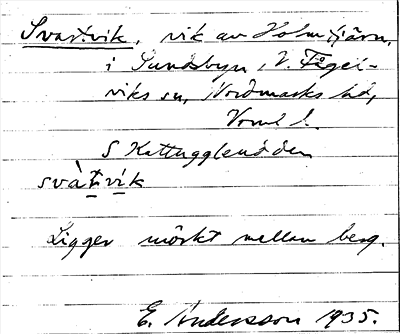 Svartvik, vik av Holmtjärn,
i Sundsbyn, N. Fågel-
viks sn, Nordmarks hd,
Vrml.
S Kattuggleudden
svàt́vík
Ligger mörkt mellan berg.
E. Andersson 1935.